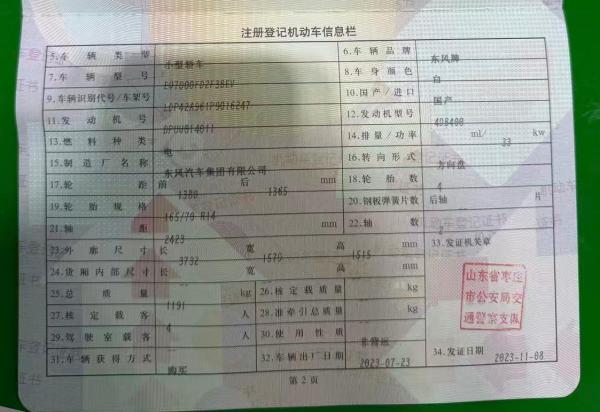 注册登记机动车信息栏
5.车辆类型 小型轿车 6.车辆品牌 东风牌
7.车辆型号 8.车身颜色 白
9.车辆识别代号/车架号 LDP42A961P9016247 10.国产/进口 国产
11.发动机号 12.发动机型号 4DB400
13.燃料种类 电 14.排量/功率 ml/ 33 kw
15.制造厂名称 东风汽车集团有限公司 16.转向形式 方向盘
17.轮距 前 1380 后 1365 mm 18.轮胎数 4
19.轮胎规格 165/70 R14 20.钢板弹簧片数 后轴 片
21.轴距 2423 mm 22.轴数 2
23.外廓尺寸 长 3732 宽 1579 高 1515 mm 33.发证机关章
24.货厢内部尺寸 长 宽 高 mm
山东省枣庄
市公安局交
通警察支队
25.总质量 1191 kg 26.核定载质量 kg
27.核定载客 4 人 28.准牵引总质量 kg
29.驾驶室载客 人 30.使用性质 非营运
31.车辆获得方式 购买 32.车辆出厂日期 2023-07-23 34.发证日期 2023-11-08
第2页